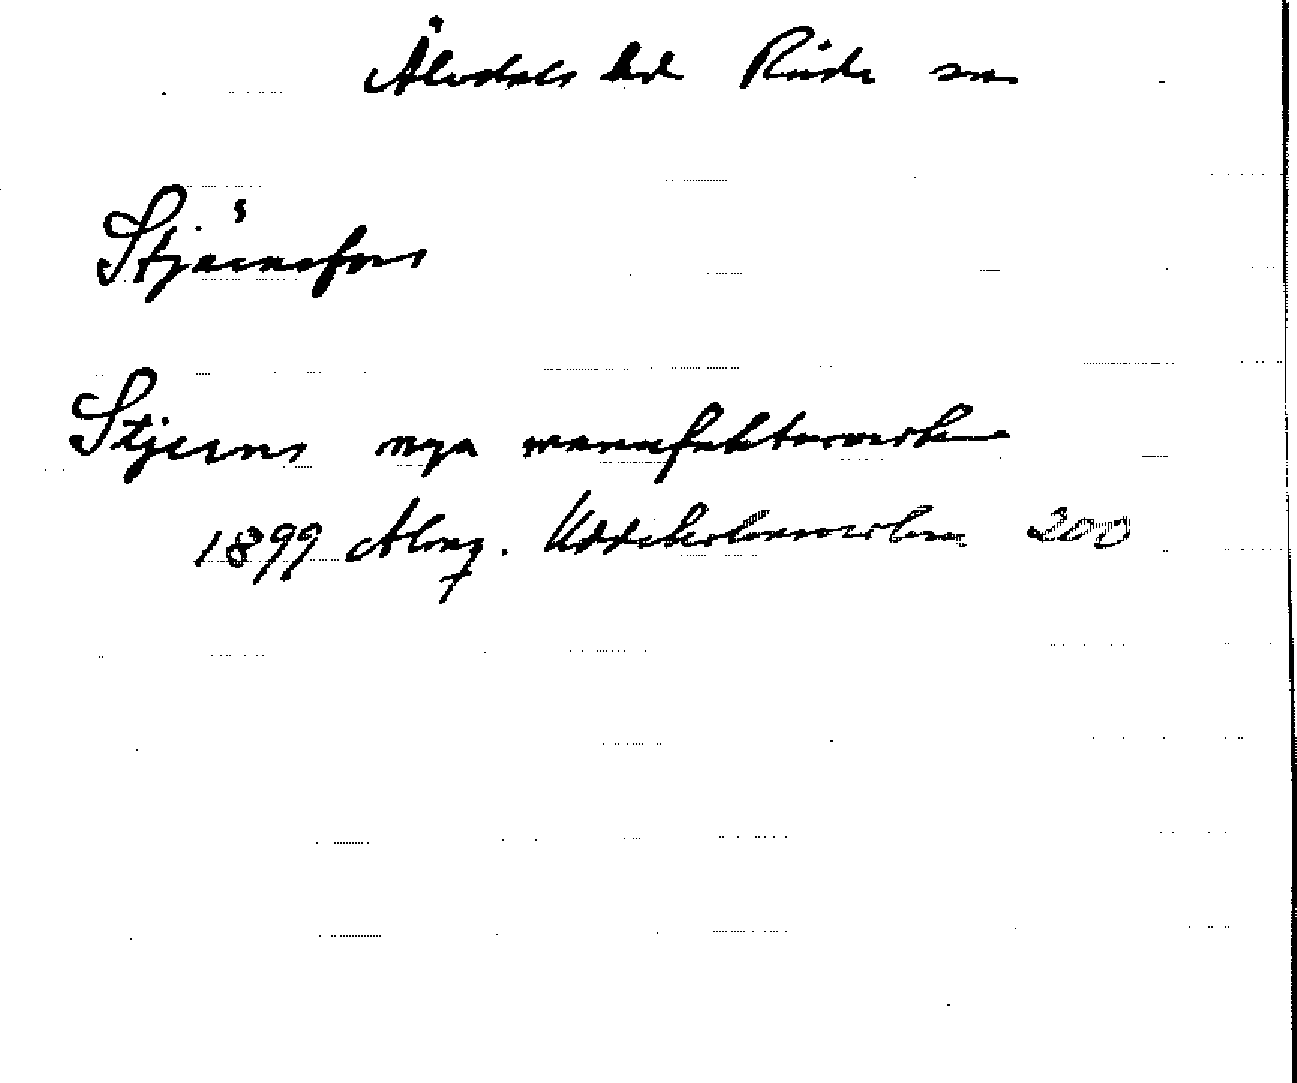 Älvdals hd Råda sn
Stjärnsfors
Stjerns nya manufakturverk
1899 Almq. Uddeholmsverken 200